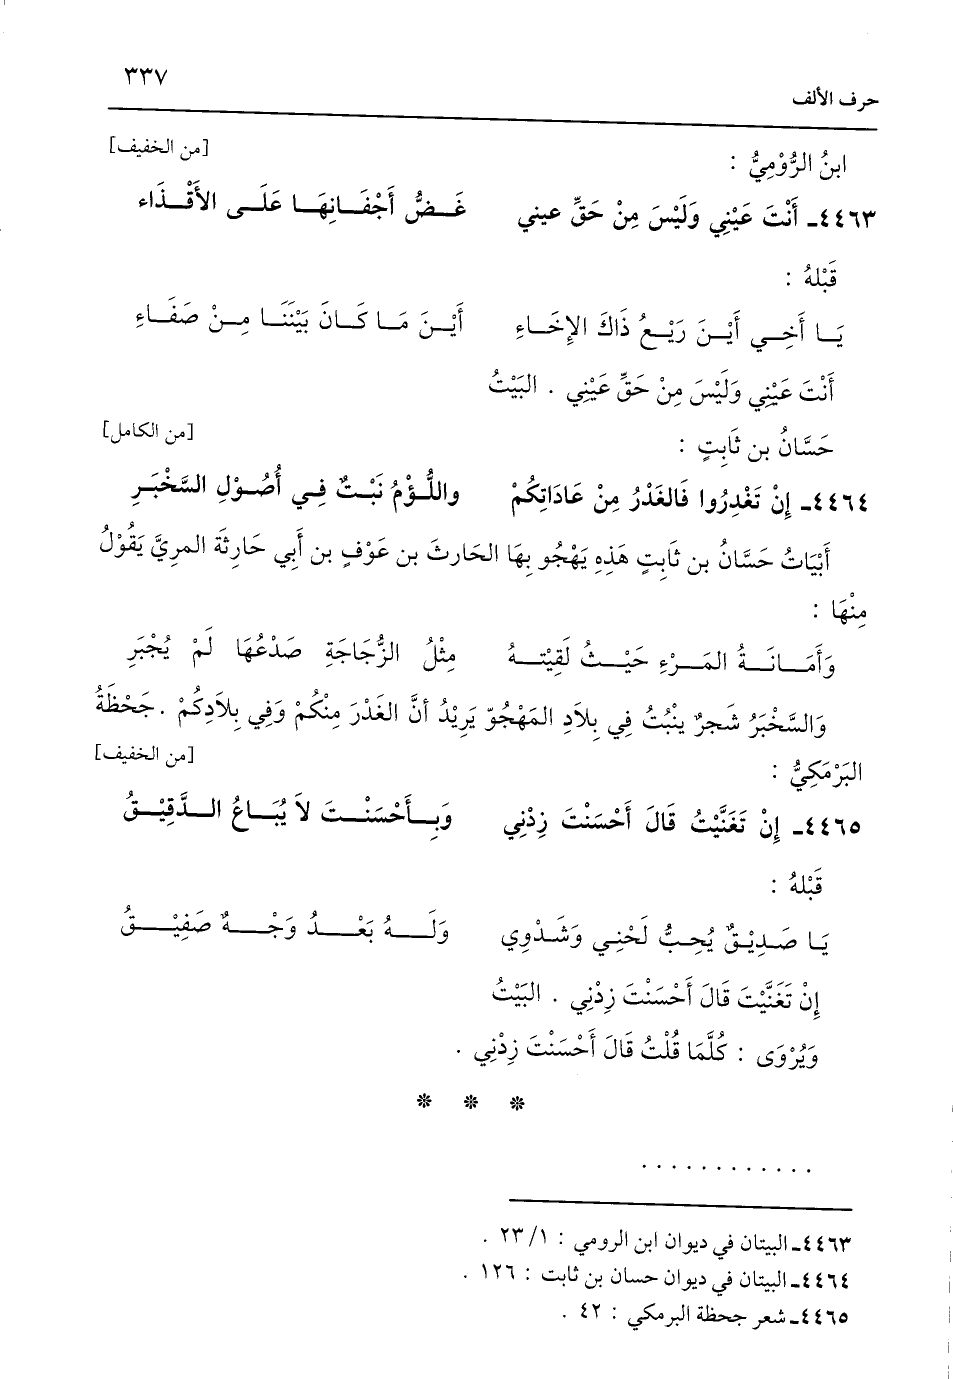 ٣٣٧
حرف الألف
ابنُ الرُّوْمِيُّ : [من الخفيف]
٤٤٦٣ـ أَنْتَ عَيْنِي وَلَيْسَ مِنْ حَقِّ عيني غَـضُّ أَجْفَـانِهَـا عَلَـى الأَقْـذَاء
قَبْلهُ :
يَـا أَخِـي أَيْـنَ رَيْـعُ ذَاكَ الإِخَـاءِ أَيْـنَ مَـا كَـانَ بَيْنَنَـا مِـنْ صَفَـاءِ
أَنْتَ عَيْنِي وَلَيْسَ مِنْ حَقِّ عَيْنِي . البَيْتُ
حَسَّانُ بن ثَابِتٍ : [من الكامل]
٤٤٦٤ـ إِنْ تَغْدِرُوا فَالغَدْرُ مِنْ عَادَاتِكُمْ واللُّـؤْمُ نَبْـتٌ فِـي أُصُـوْلِ السَّخْبَـرِ
أَبْيَاتُ حَسَّانُ بن ثَابِتٍ هَذِهِ يَهْجُو بِهَا الحَارِثَ بن عَوْفٍ بن أَبِي حَارِثَةَ المريَّ يَقُوْلُ
مِنْهَا :
وَأَمَـانَـةُ المَـرْءِ حَيْـثُ لَقِيْتـهُ مِثْلُ الزُّجَاجَةِ صَدْعُهَا لَمْ يُجْبَرِ
وَالسَّخْبَرُ شَجرٌ ينْبُتُ فِي بِلاَدِ المَهْجُوّ يَرِيْدُ أنَّ الغَدْرَ مِنْكُمْ وَفِي بِلاَدِكُمْ . جَحْظَةُ
البَرْمَكِيُّ : [من الخفيف]
٤٤٦٥ـ إِنْ تَغَنَّيْتُ قَالَ أَحْسَنْتَ زِدْنِي وَبِـأَحْسَنْـتَ لاَ يُبَـاعُ الـدَّقِيْـقُ
قَبْلهُ :
يَـا صَـدِيْـقٌ يُحِـبُّ لَحْنِـي وَشَـدْوِي وَلَـهُ بَعْـدُ وَجْـهٌ صَفِيْـقُ
إِنْ تَغَنَّيْتَ قَالَ أَحْسَنْتَ زِدْنِي . البَيْتُ
وَيُرْوَى : كُلَّمَا قُلْتُ قَالَ أَحْسَنْتَ زِدْنِي .
* * *
. . . . . . . . . . . .
٤٤٦٣ـ البيتان في ديوان ابن الرومي : ١/ ٢٣ .
٤٤٦٤ـ البيتان في ديوان حسان بن ثابت : ١٢٦ .
٤٤٦٥ـ شعر جحظة البرمكي : ٤٢ .